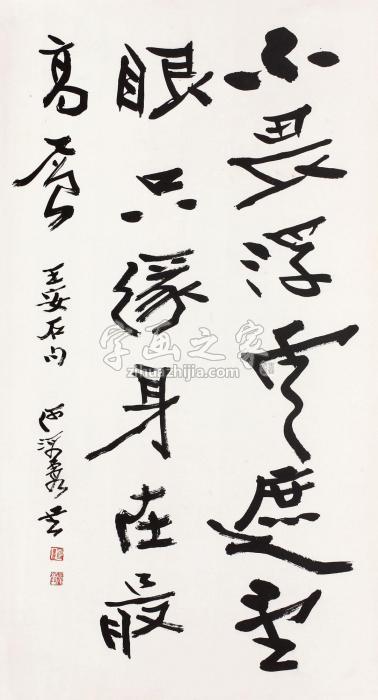 不畏浮雲遮望
眼只緣身在最
高層 王安石句
字画之家
zihuazhijia.com